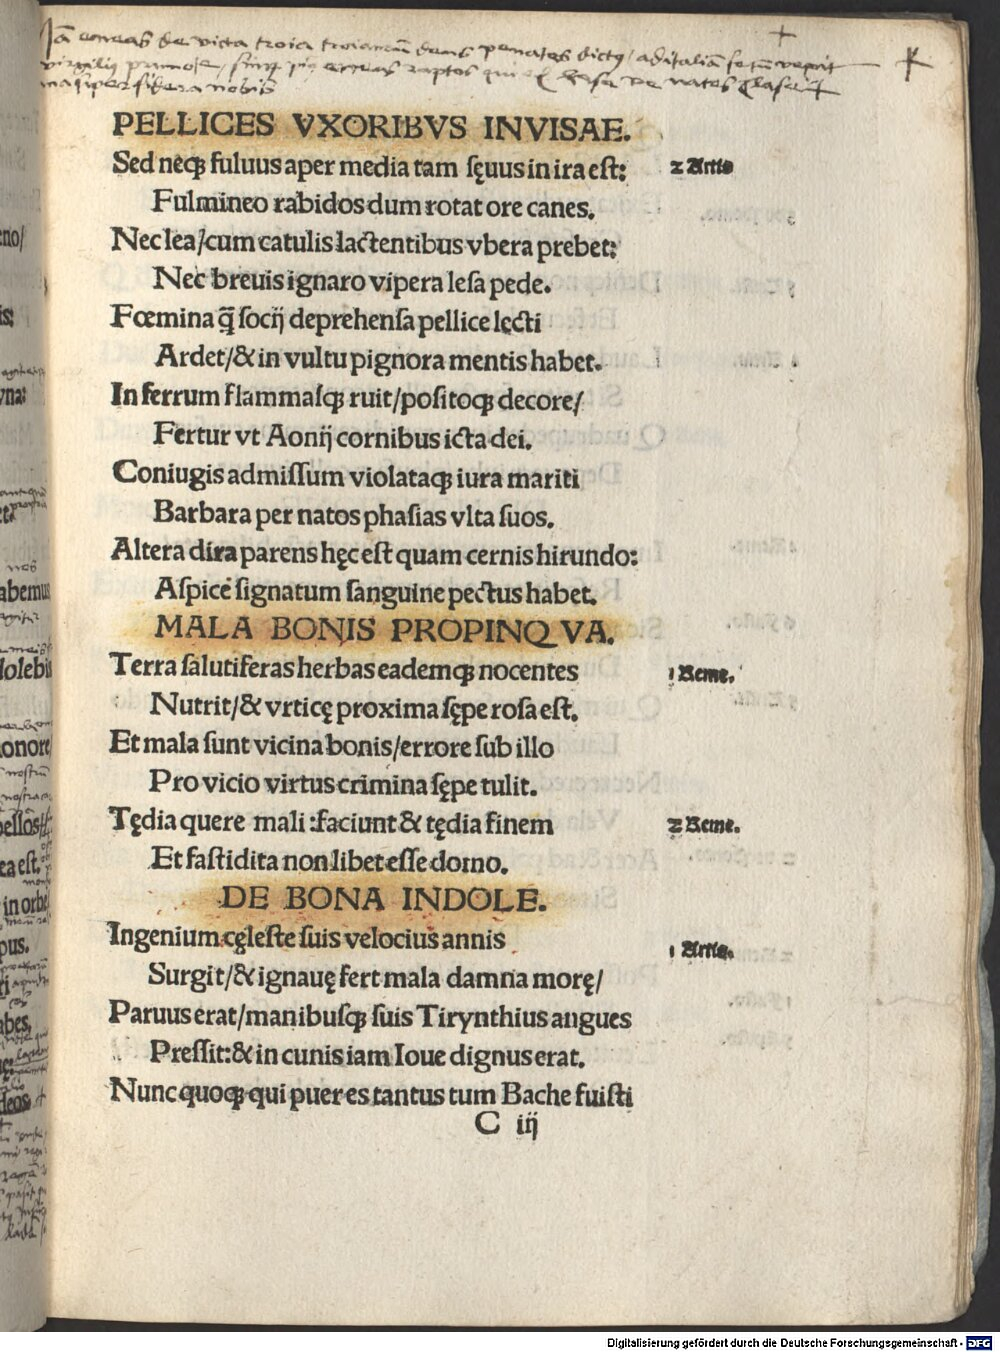 Iā eneas de victa troia troianū deos penates dictꝰ, ad italiā secū vexit
virgiliꝰ primo, sum piꝰ eneas raptos qui ex hoste penates classe
PELLICES VXORIBVS INVISAE.
Sed neqꝫ fuluus aper media tam sęuus in ira est: 2 Artis
Fulmineo rabidos dum rotat ore canes.
Nec lea/cum catulis lactentibus vbera prebet:
Nec breuis ignaro vipera lesa pede.
Fœmina q̄ socij deprehensa pellice lęcti
Ardet/& in vultu pignora mentis habet.
In ferrum flammasqꝫ ruit/positoqꝫ decore/
Fertur vt Aonij cornibus icta dei.
Coniugis admissum violataqꝫ iura mariti
Barbara per natos phasias vlta suos.
Altera dira parens hęc est quam cernis hirundo:
Aspice signatum sanguine pectus habet.
MALA BONIS PROPINQVA.
Terra salutiferas herbas eademqꝫ nocentes 1 Reme.
Nutrit/& vrticę proxima sępe rosa est.
Et mala sunt vicina bonis/errore sub illo
Pro vicio virtus crimina sępe tulit.
Tędia quere mali :faciunt & tędia finem 2 Reme.
Et fastidita non libet esse domo.
DE BONA INDOLE.
Ingenium cęleste suis velocius annis 1 Artis.
Surgit/& ignauę fert mala damna morę/
Paruus erat/manibusqꝫ suis Tirynthius angues
Pressit:& in cunis iam Ioue dignus erat.
Nunc quoqꝫ qui puer es tantus tum Bache fuisti
C iij
Digitalisierung gefördert durch die Deutsche Forschungsgemeinschaft - DFG